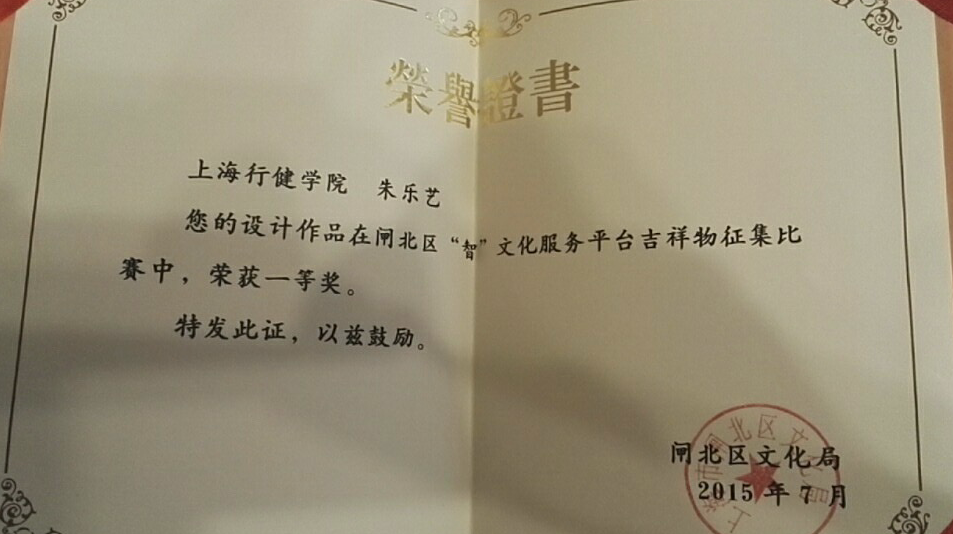 榮譽證書
上海行健学院 朱乐艺
您的设计作品在闸北区“智”文化服务平台吉祥物征集比
赛中，荣获一等奖。
特发此证，以兹鼓励。
闸北区文化局
2015 年 7 月
上海市闸北区文化局